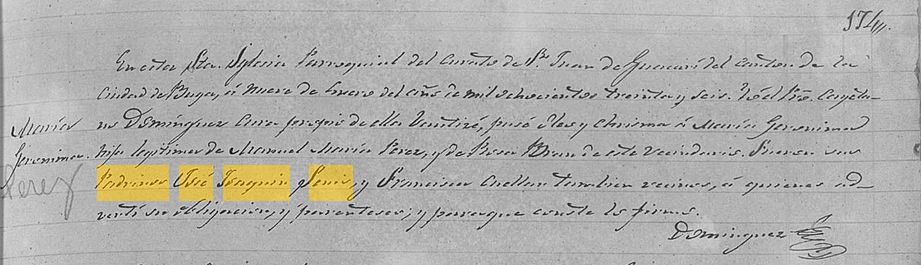 174
En esta Sta. Iglesia Parroquial del Curato de Sn. Juan de Guacarí del canton de la
Ciudad de Buga, á nueve de Enero del año de mil ochocientos treinta y seis. Yo el Pro. Cayeta-
no Dominguez Cura propio de ella bautizé, pusé Oleo y Chrisma á María Geronima
María
Geronima
Perez
hija legitima de Manuel María Perez, y de Rosa de este vecindario. Fueron sus
Padrinos José Joaquin y Francisca Cuellar tambien vecinos, á quienes ad-
vertí su obligacion, y parentesco; y para que conste lo firmo.
Dominguez